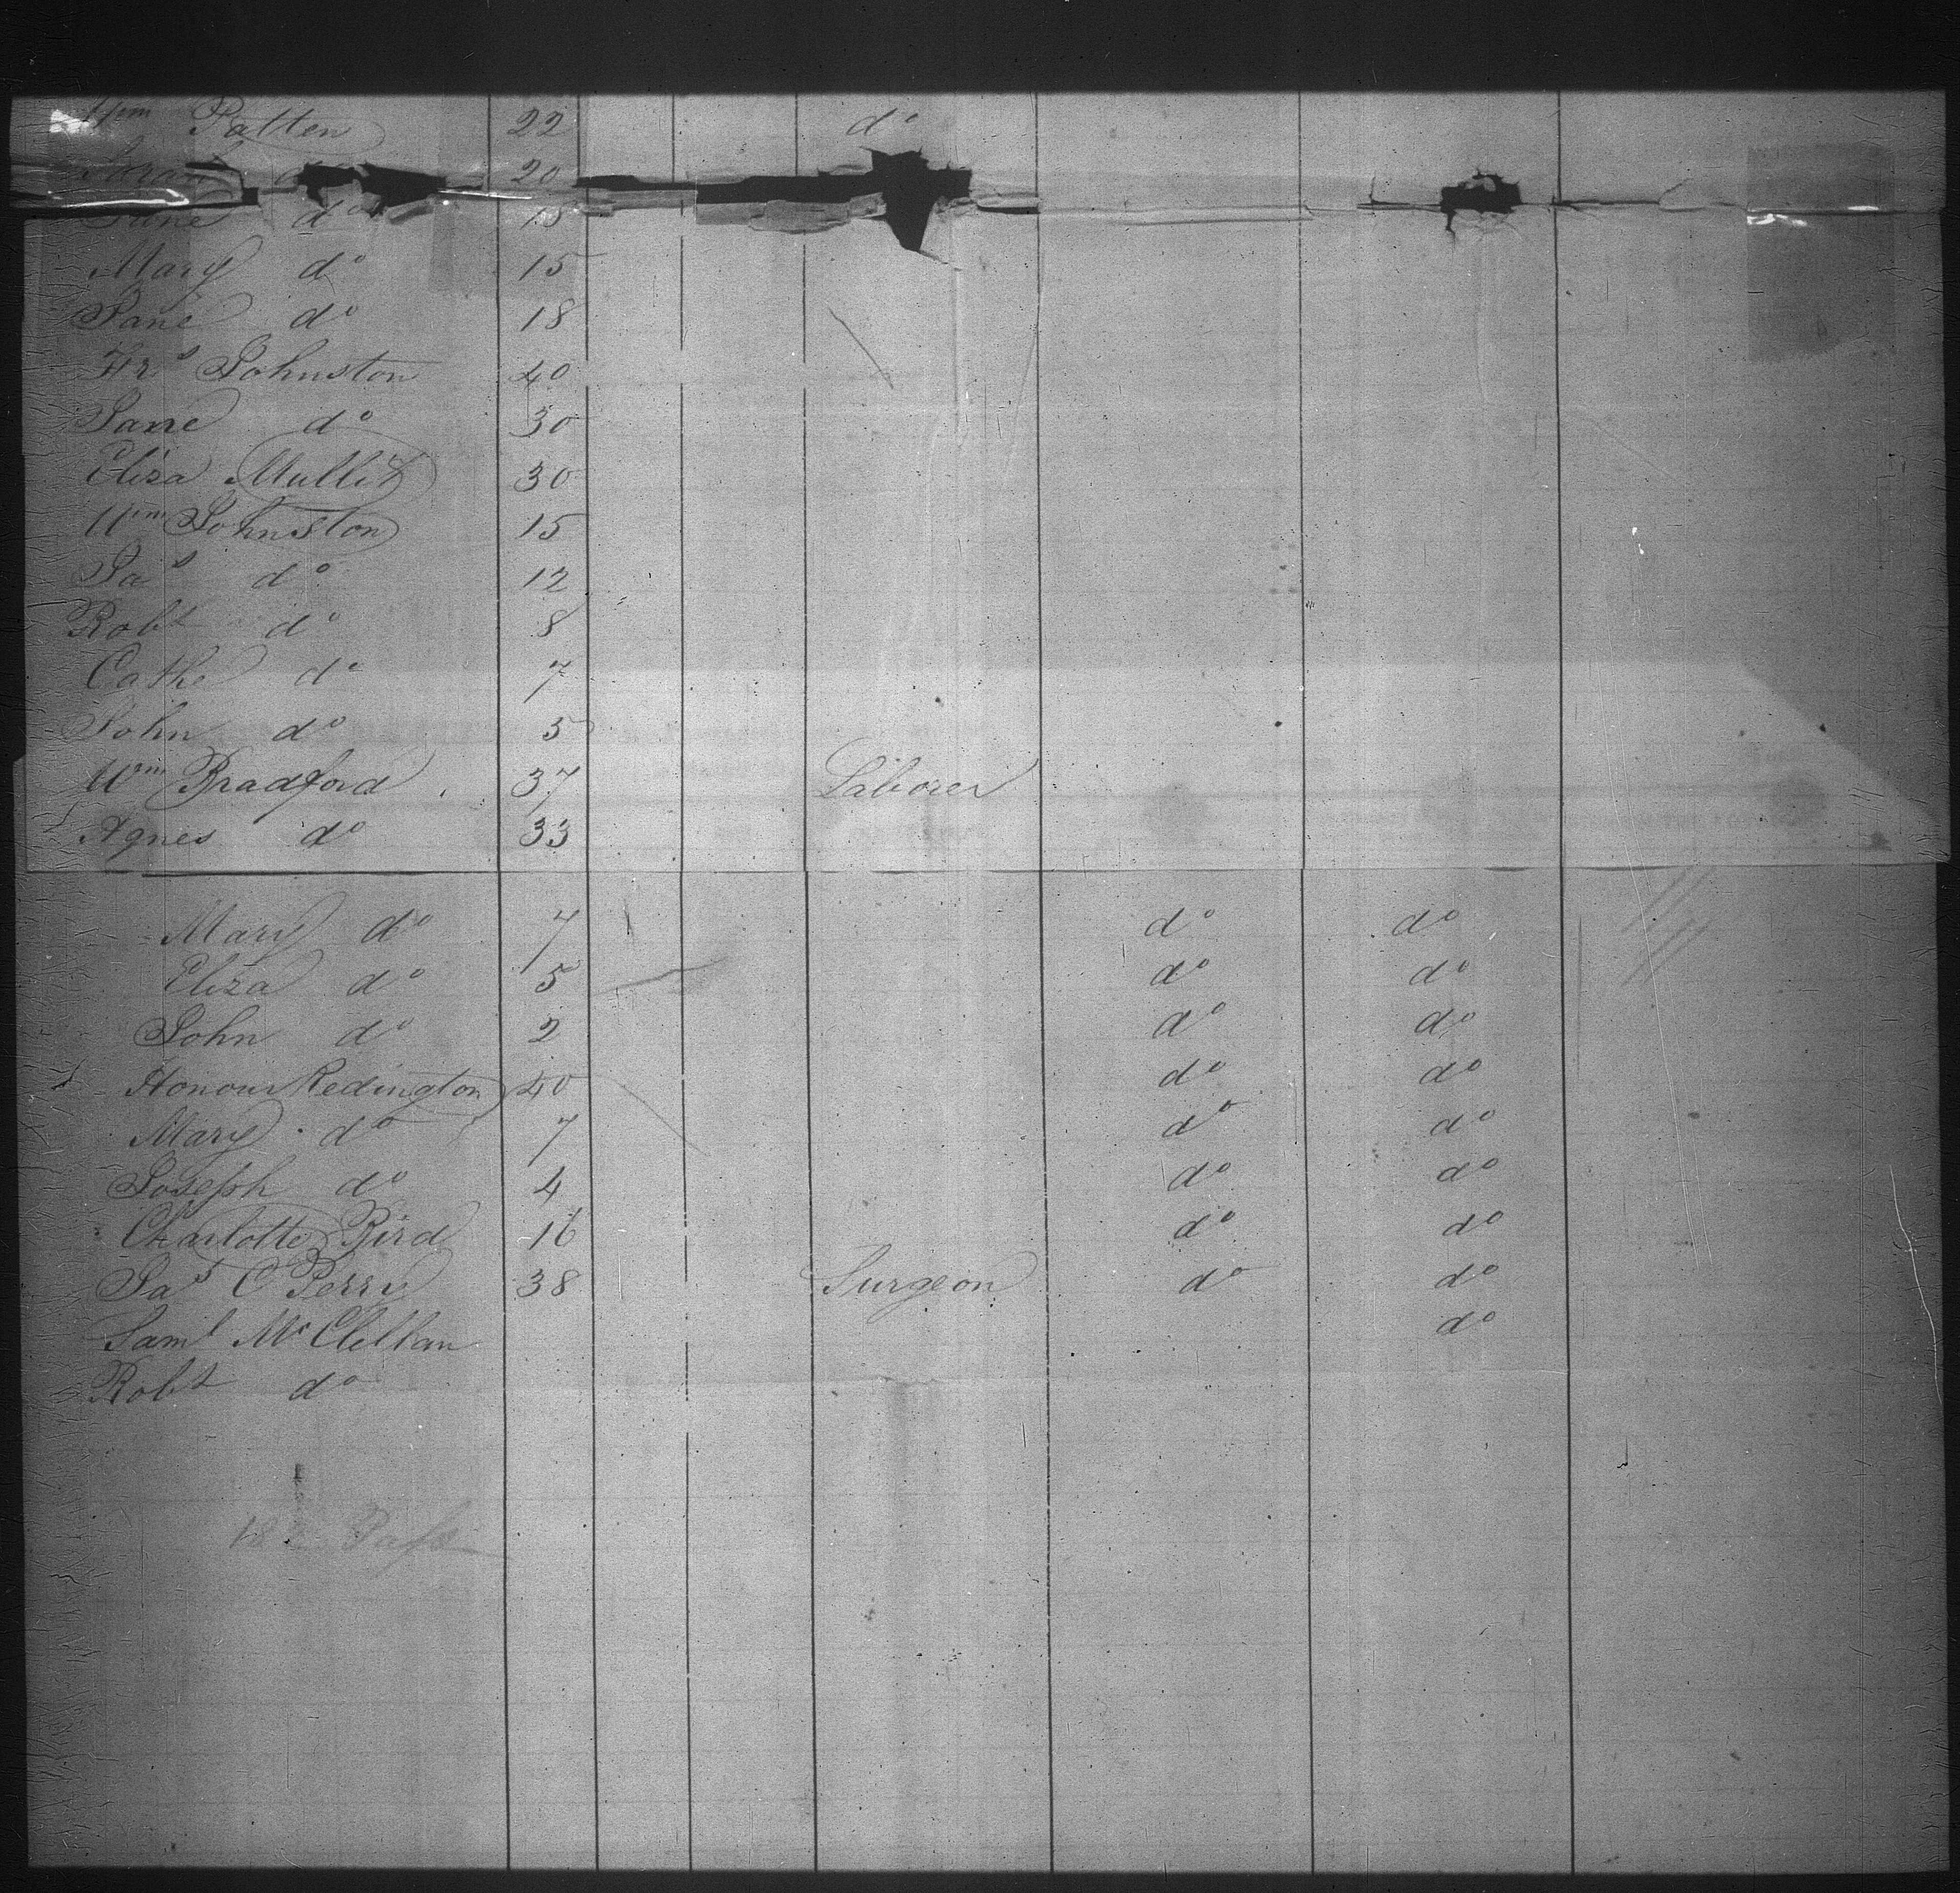 Wm Patten 22 do
Sarah 20
Jane do 18
Mary do 15
Jane do 18
Frs Johnston 40
Jane do 30
Eliza Mullit 30
Wm Johnston 15
Jas do 12
Robt do 8
Cathe do 7
John do 5
Wm Bradford 37 Laborer
Agnes do 33
Mary do 7 do do
Eliza do 5 do do
John do 2 do do
Honour Redington 40 do do
Mary do 7 do do
Joseph do 4 do do
Charlotte Bird 16 do do
Jas C Perry 38 Surgeon do do
Saml McClellan do
Robt do
Pass